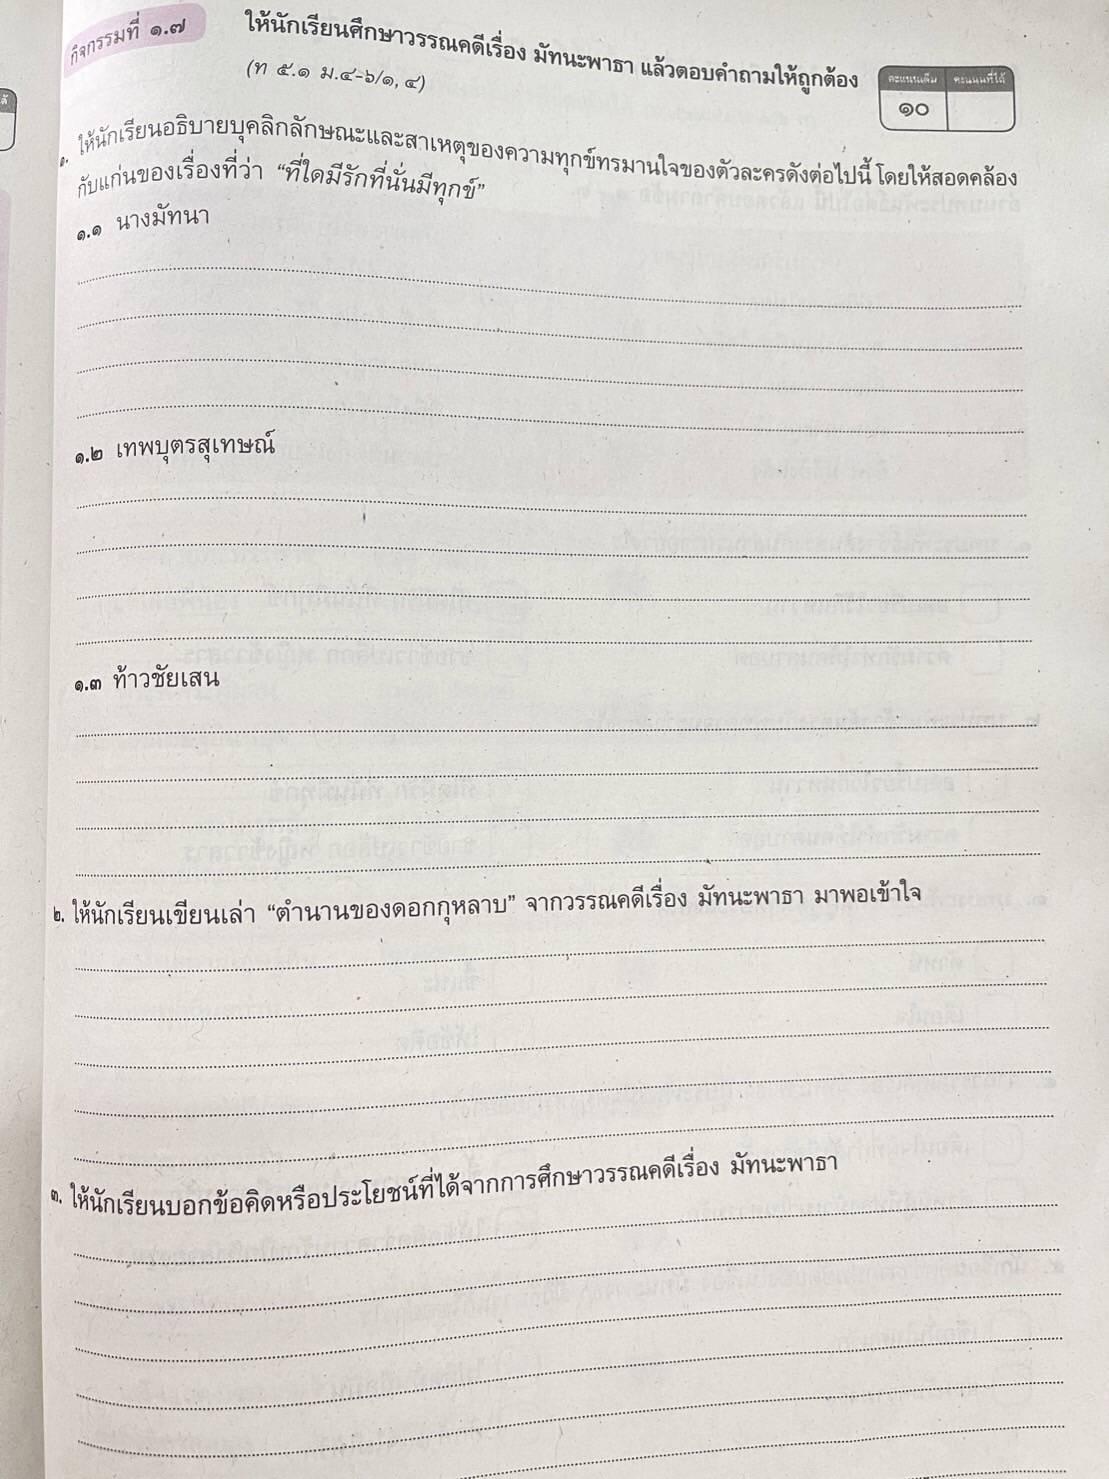 กิจกรรมที่ ๑.๗
ให้นักเรียนศึกษาวรรณคดีเรื่อง มัทนะพาธา แล้วตอบคำถามให้ถูกต้อง
(ท ๕.๑ ม.๔-๖/๑, ๔)
คะแนนเต็ม คะแนนที่ได้
๑๐
๑. ให้นักเรียนอธิบายบุคลิกลักษณะและสาเหตุของความทุกข์ทรมานใจของตัวละครดังต่อไปนี้ โดยให้สอดคล้อง
กับแก่นของเรื่องที่ว่า “ที่ใดมีรักที่นั่นมีทุกข์”
๑.๑ นางมัทนา
๑.๒ เทพบุตรสุเทษณ์
๑.๓ ท้าวชัยเสน
๒. ให้นักเรียนเขียนเล่า “ตำนานของดอกกุหลาบ” จากวรรณคดีเรื่อง มัทนะพาธา มาพอเข้าใจ
๓. ให้นักเรียนบอกข้อคิดหรือประโยชน์ที่ได้จากการศึกษาวรรณคดีเรื่อง มัทนะพาธา